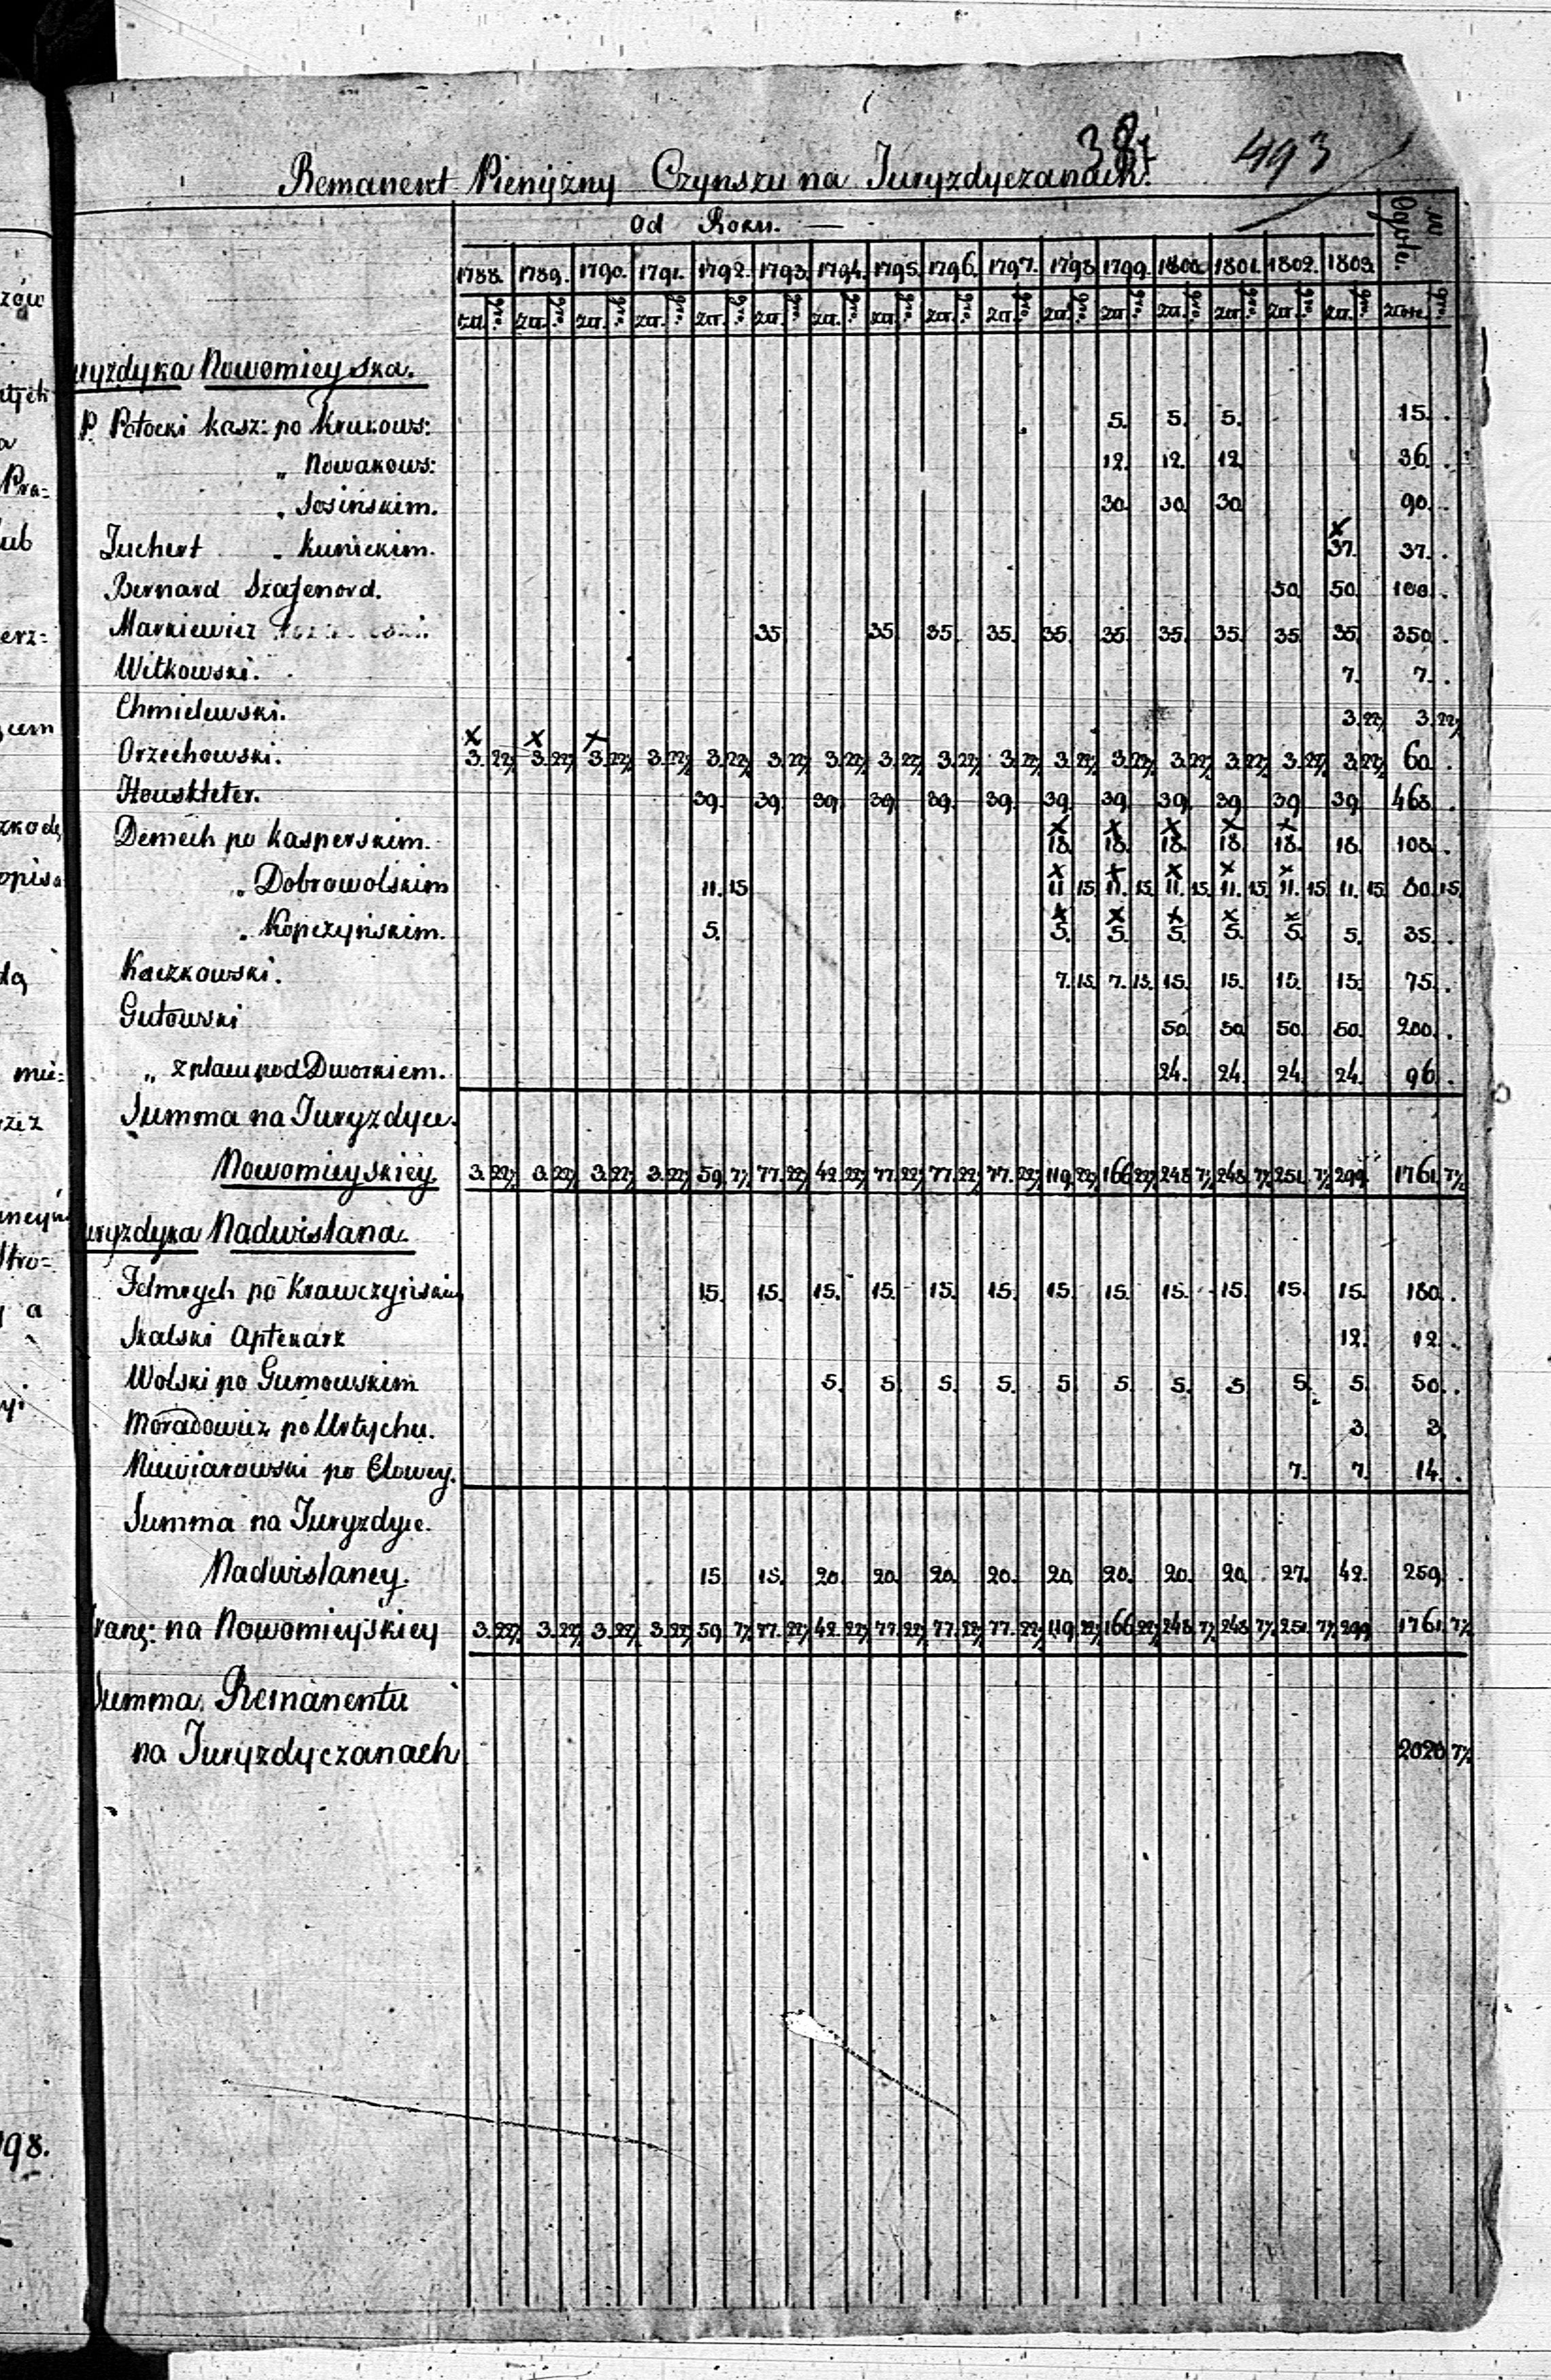 387 493
Remanent Pieniężny Czynszu na Juryzdyczanach.
Od Roku. — w Ogule.
1788. 1789. 1790. 1791. 1792. 1793. 1794. 1795. 1796. 1797. 1798. 1799. 1800. 1801. 1802. 1803.
zł. gro. zł. gro. zł. gro. zł. gro. zł. gro. zł. gro. zł. gro. zł. gro. zł. gro. zł. gro. zł. gro. zł. gro. zł. gro. zł. gro. zł. gro. zł. gro. złote gro.
uryzdyka Nowomieyska.
P. Potocki kasz: po Krukows: 5. 5. 5. 15. .
„ Nowakows: 12. 12. 12 36. .
„ Sosińskim. 30. 30. 30. 90. .
Juchert „ Kunickim. x 37. 37. .
Bernard Szafenord. 50. 50. 100. .
Markiewicz 35. 35. 35. 35. 35. 35. 35. 35. 35. 35. 350. .
Witkowski. 7. 7. .
Chmielewski. 3. 22½ 3. 22½
x x x
Orzechowski. 3. 22½ 3. 22½ 3. 22½ 3. 22½ 3. 22½ 3. 22½ 3. 22½ 3. 22½ 3. 22½ 3. 22½ 3. 22½ 3. 22½ 3. 22½ 3. 22½ 3. 22½ 3. 22½ 60. .
Houskleter. 39. 39. 39. 39. 39. 39. 39. 39. 39. 39. 39. 39. 468. .
x x x x x
Demech po Kasperskim. 18. 18. 18. 18. 18. 18. 108. .
x x x x x
„ Dobrowolskim 11. 15 11. 15. 11. 15. 11. 15. 11. 15. 11. 15. 11. 15. 80. 15.
x x x x x
„ Kopczyńskim. 5. 5. 5. 5. 5. 5. 5. 35. .
Kaczkowski. 7. 15. 7. 15. 15. 15. 15. 15. 75. .
Gutowski 50. 50. 50. 50. 200. .
„ z placu pod Dworkiem. 24. 24. 24. 24. 96. .
Summa na Juryzdyce.
Nowomieyskiey 3. 22½ 3. 22½ 3. 22½ 3. 22½ 59. 7½ 77. 22½ 42. 22½ 77. 22½ 77. 22½ 77. 22½ 119. 22½ 166. 22½ 248. 7½ 248. 7½ 251. 7½ 299. 1761. 7½
uryzdyka Nadwislana.
Felmrych po Krawczyńskim 15. 15. 15. 15. 15. 15. 15. 15. 15. 15. 15. 15. 180. .
Skalski Aptekarz 12. 12. .
Wolski po Gumowskim 5. 5. 5. 5. 5. 5. 5. 5. 5. 5. 50. .
Moradowicz po Urtychu. 3. 3.
Niewiarowski po Clowey. 7. 7. 14. .
Summa na Juryzdyc.
Nadwislaney. 15. 15. 20. 20. 20. 20. 20. 20. 20. 20. 27. 42. 259. .
rans: na Nowomieyskiey 3. 22½ 3. 22½ 3. 22½ 3. 22½ 59. 7½ 77. 22½ 42. 22½ 77. 22½ 77. 22½ 77. 22½ 119. 22½ 166. 22½ 248. 7½ 248. 7½ 251. 7½ 299. 1761. 7½
Summa Remanentu
na Juryzdyczanach 2020 7½